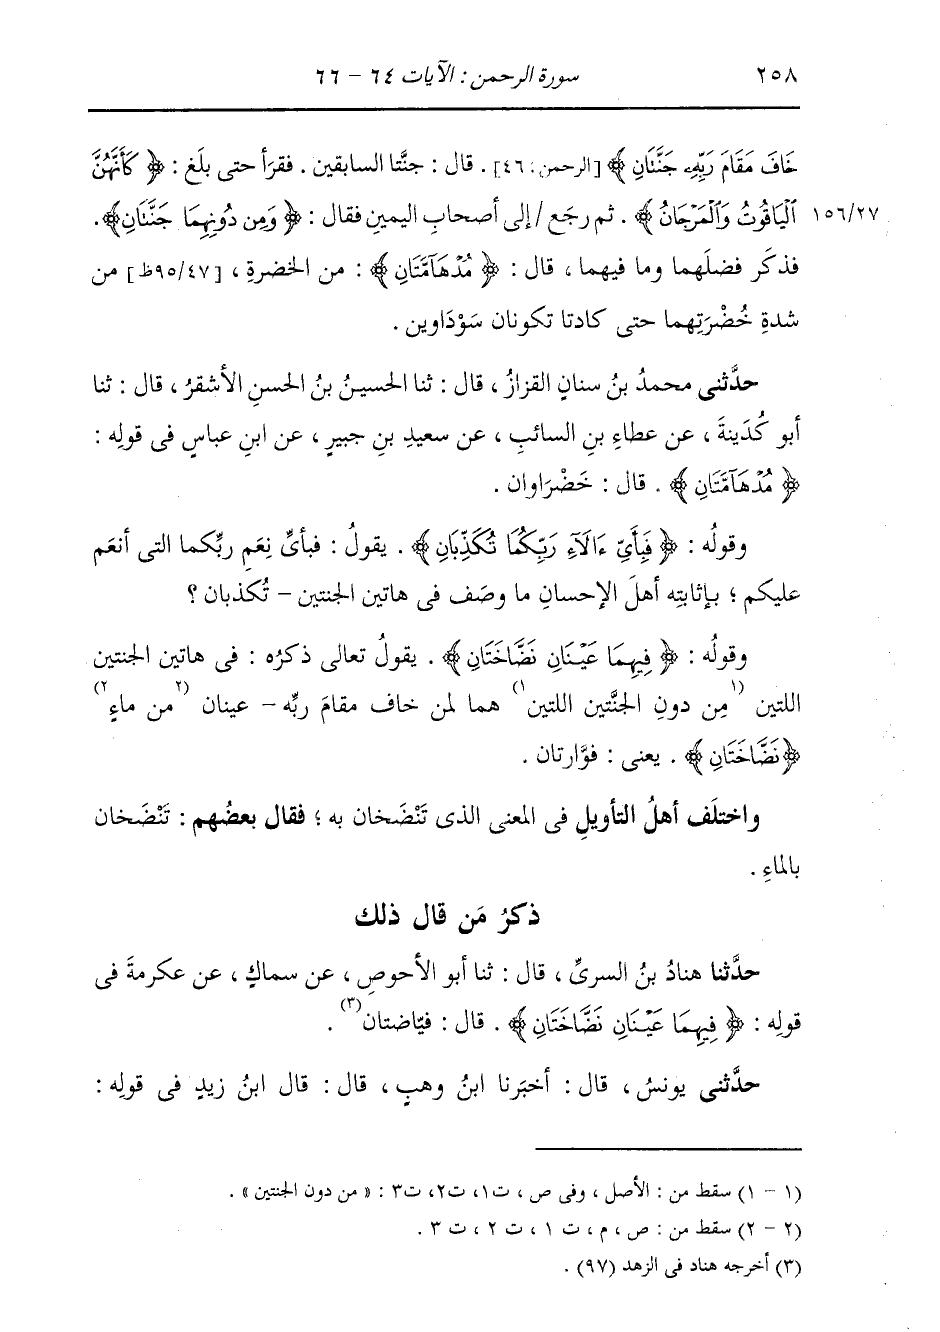 ٢٥٨ سورة الرحمن : الآيات ٦٤ - ٦٦
خَافَ مَقَامَ رَبِّهِۦ جَنَّتَانِ ﴾ [الرحمن : ٤٦] . قال : جنَّتا السابقين . فقرَأ حتى بلَغ : ﴿ كَأَنَّهُنَّ
ٱلْيَاقُوتُ وَٱلْمَرْجَانُ ﴾ . ثم رجَع / إلى أصحابِ اليمينِ فقال : ﴿ وَمِن دُونِهِمَا جَنَّتَانِ ﴾ . ١٥٦/٢٧
فذكَر فضلَهما وما فيهما ، قال : ﴿ مُدْهَآمَّتَانِ ﴾ : من الخضرةِ ، [٩٥/٤٧ظ] من
شدةِ خُضْرَتِهما حتى كادتا تكونان سَوْدَاوين .
حدَّثنى محمدُ بنُ سنانٍ القزازُ ، قال : ثنا الحسينُ بنُ الحسنِ الأشقرُ ، قال : ثنا
أبو كُدَينةَ ، عن عطاءِ بنِ السائبِ ، عن سعيدِ بنِ جبيرٍ ، عن ابنِ عباسٍ فى قولِه :
﴿ مُدْهَآمَّتَانِ ﴾ . قال : خَضْرَاوان .
وقولُه : ﴿ فَبِأَيِّ ءَالَآءِ رَبِّكُمَا تُكَذِّبَانِ ﴾ . يقولُ : فبأىِّ نِعَمِ ربِّكما التى أنعَم
عليكم ؛ بإثابتِه أهلَ الإحسانِ ما وصَف فى هاتين الجنتين - تُكذبان ؟
وقولُه : ﴿ فِيهِمَا عَيْنَانِ نَضَّاخَتَانِ ﴾ . يقولُ تعالى ذكرُه : فى هاتين الجنتين
اللتين (١) مِن دونِ الجنَّتين اللتين (١) هما لمن خاف مقامَ ربِّه - عينان (٢) من ماءٍ (٢)
﴿ نَضَّاخَتَانِ ﴾ . يعنى : فوَّارتان .
واختلَف أهلُ التأويلِ فى المعنى الذى تَنْضَخان به ؛ فقال بعضُهم : تَنْضَخان
بالماءِ .
ذكرُ مَن قال ذلك
حدَّثنا هنادُ بنُ السرىِّ ، قال : ثنا أبو الأحوصِ ، عن سماكٍ ، عن عكرمةَ فى
قولِه : ﴿ فِيهِمَا عَيْنَانِ نَضَّاخَتَانِ ﴾ . قال : فيّاضتان (٣) .
حدَّثنى يونسُ ، قال : أخبَرنا ابنُ وهبٍ ، قال : قال ابنُ زيدٍ فى قولِه :
(١ - ١) سقط من : الأصل ، وفى ص ، ت١، ت٢، ت٣ : « من دون الجنتين » .
(٢ - ٢) سقط من : ص ، م ، ت ١ ، ت ٢ ، ت ٣ .
(٣) أخرجه هناد فى الزهد (٩٧) .